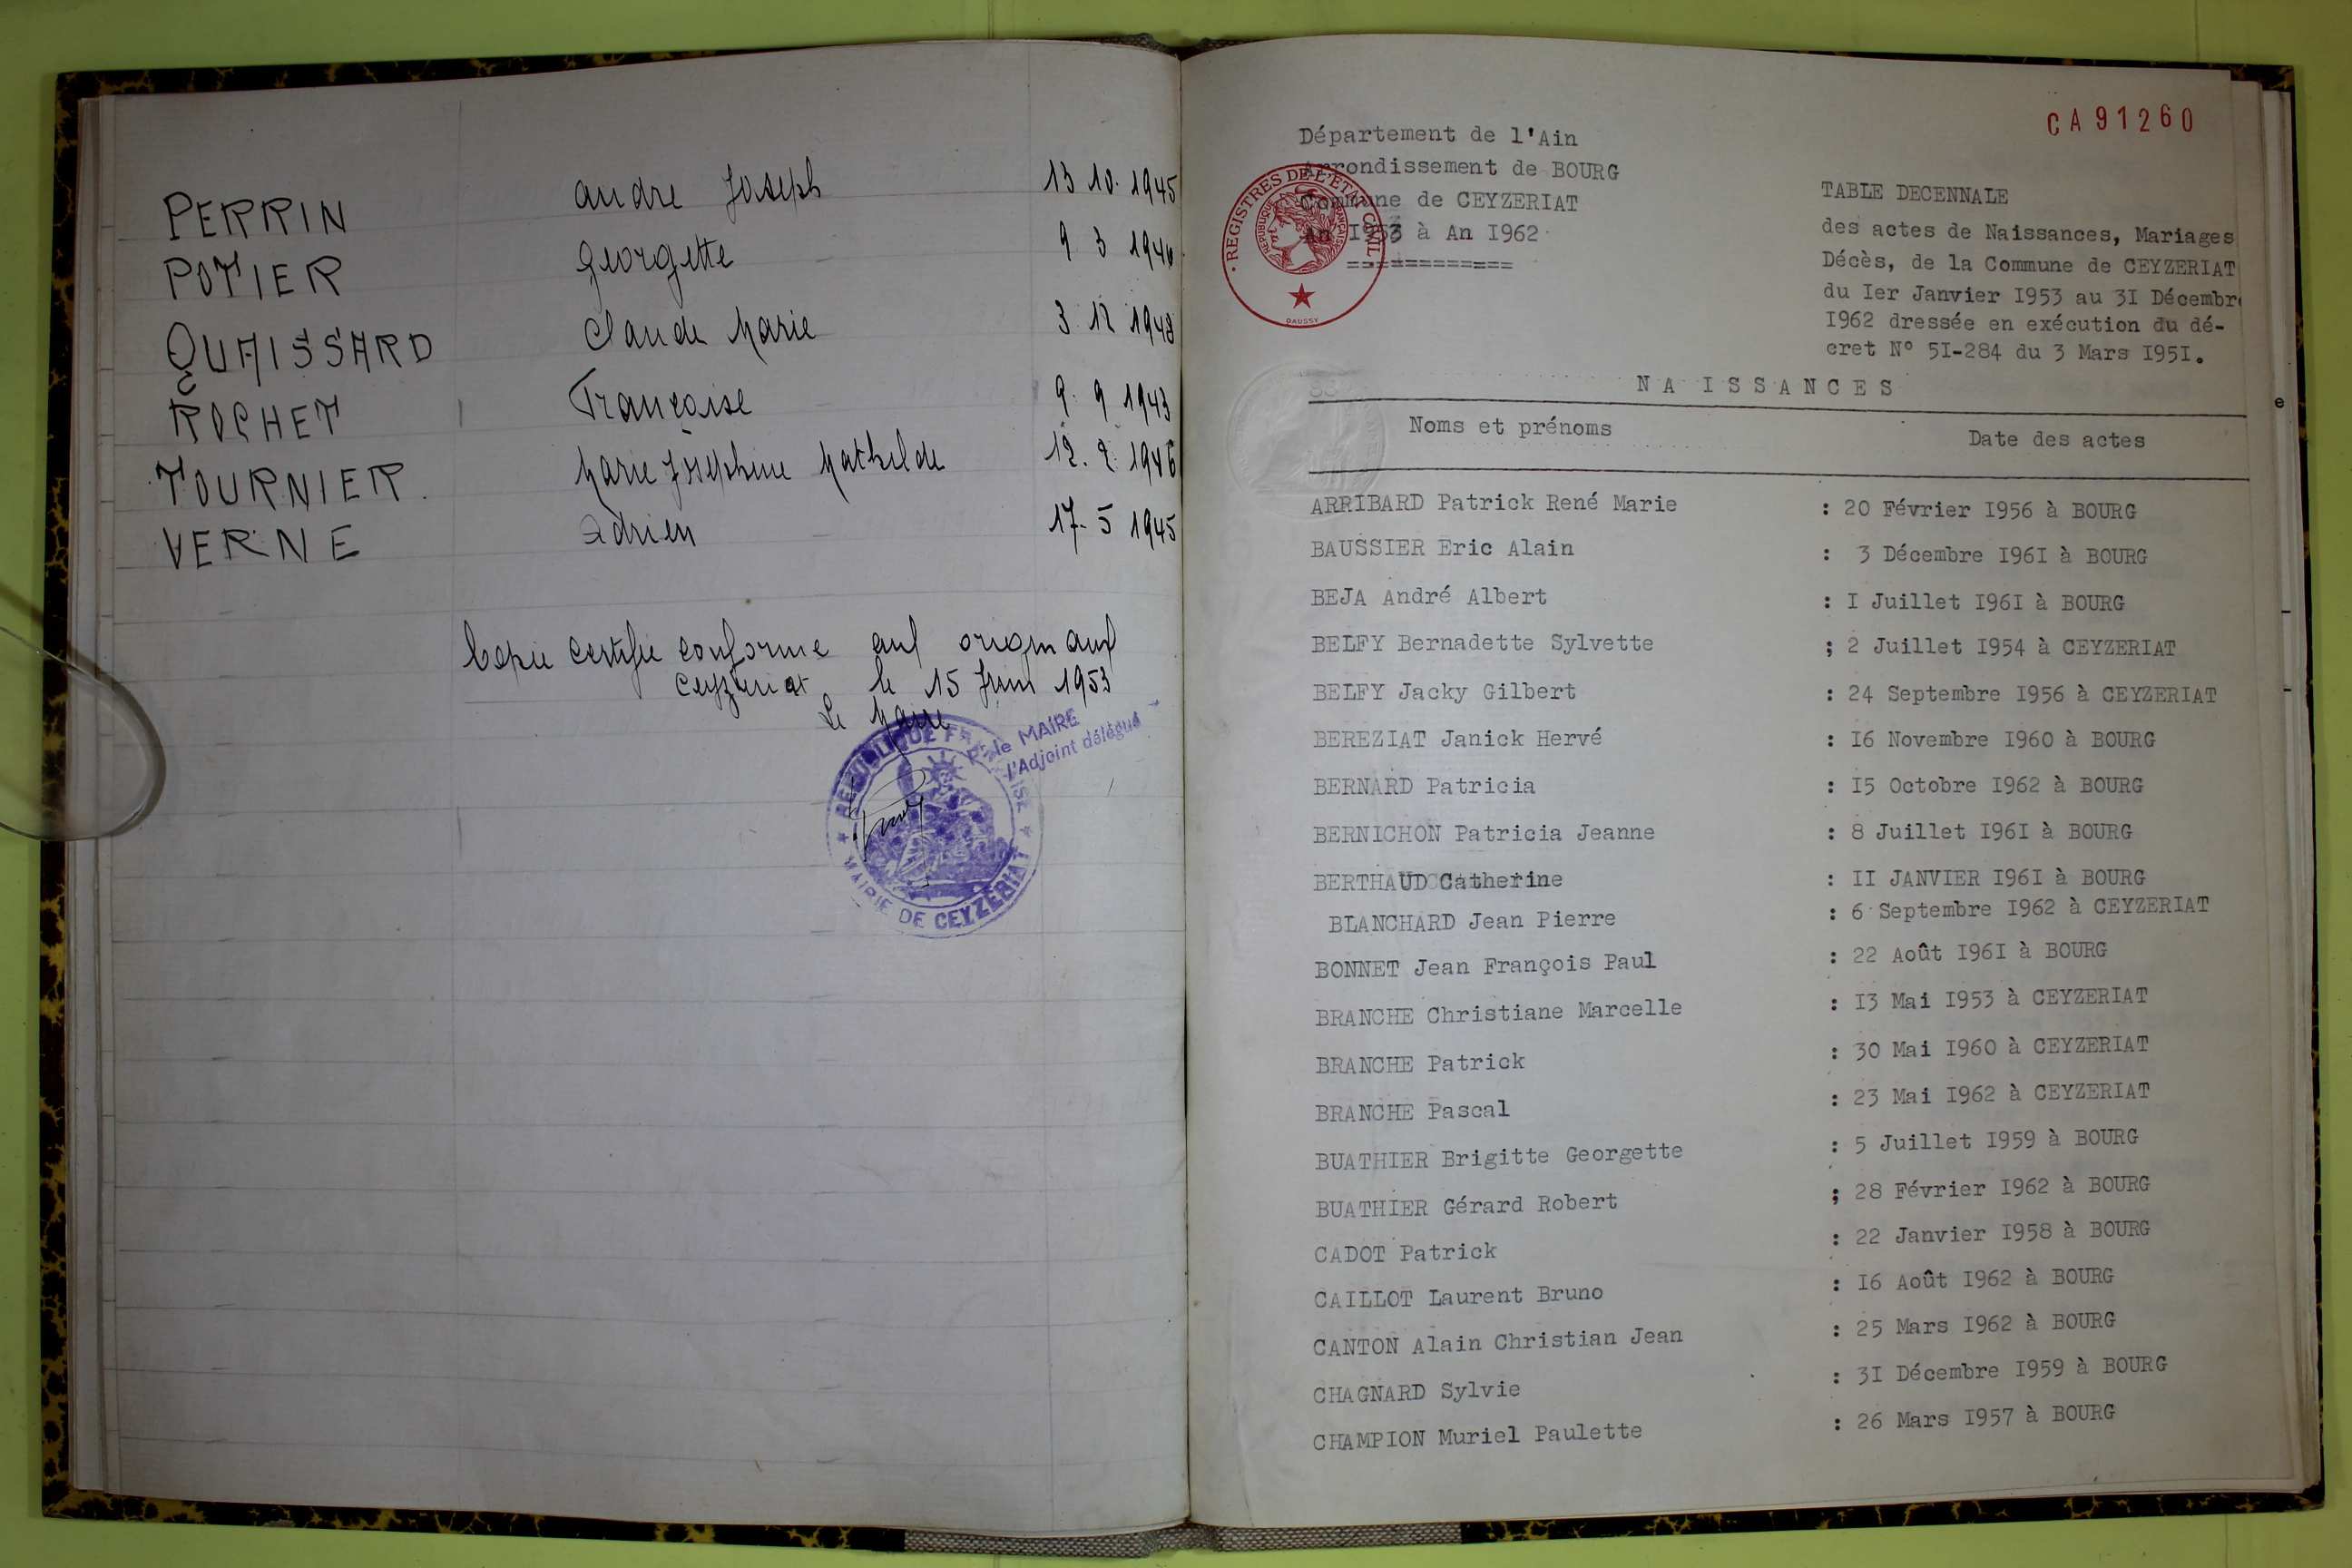 PERRIN andre Joseph 13 10. 1945
POTIER Georgette 9 3 1946
QUAISSARD Claude Marie 3 12 1948
ROCHET Françoise 9. 9 1943
TOURNIER. Marie Joséphine Mathilde 12. 2 1946
VERNE adrien 17. 5 1945
Copie certifie conforme aux originaux
Ceyzeriat le 15 Juin 1953
Le Maire
Pr le MAIRE
l'Adjoint délégué
RÉPUBLIQUE FRANÇAISE
MAIRIE DE CEYZÉRIAT
CA91260
Département de l'Ain
Arrondissement de BOURG
Commune de CEYZERIAT
An I953 à An I962
============
REGISTRES DE L'ETAT CIVIL
REPUBLIQUE FRANÇAISE
DAUSSY
TABLE DECENNALE
des actes de Naissances, Mariages
Décès, de la Commune de CEYZERIAT
du Ier Janvier I953 au 3I Décembre
I962 dressée en exécution du dé-
cret N° 5I-284 du 3 Mars I95I.
NAISSANCES
Noms et prénoms Date des actes
ARRIBARD Patrick René Marie : 20 Février I956 à BOURG
BAUSSIER Eric Alain : 3 Décembre I96I à BOURG
BEJA André Albert : I Juillet I96I à BOURG
BELFY Bernadette Sylvette ; 2 Juillet I954 à CEYZERIAT
BELFY Jacky Gilbert : 24 Septembre I956 à CEYZERIAT
BEREZIAT Janick Hervé : I6 Novembre I960 à BOURG
BERNARD Patricia : I5 Octobre I962 à BOURG
BERNICHON Patricia Jeanne : 8 Juillet I96I à BOURG
BERTHAUD Catherine : II JANVIER I96I à BOURG
BLANCHARD Jean Pierre : 6 Septembre I962 à CEYZERIAT
BONNET Jean François Paul : 22 Août I96I à BOURG
BRANCHE Christiane Marcelle : I3 Mai I953 à CEYZERIAT
BRANCHE Patrick : 30 Mai I960 à CEYZERIAT
BRANCHE Pascal : 23 Mai I962 à CEYZERIAT
BUATHIER Brigitte Georgette : 5 Juillet I959 à BOURG
BUATHIER Gérard Robert ; 28 Février I962 à BOURG
CADOT Patrick : 22 Janvier I958 à BOURG
CAILLOT Laurent Bruno : I6 Août I962 à BOURG
CANTON Alain Christian Jean : 25 Mars I962 à BOURG
CHAGNARD Sylvie : 3I Décembre I959 à BOURG
CHAMPION Muriel Paulette : 26 Mars I957 à BOURG